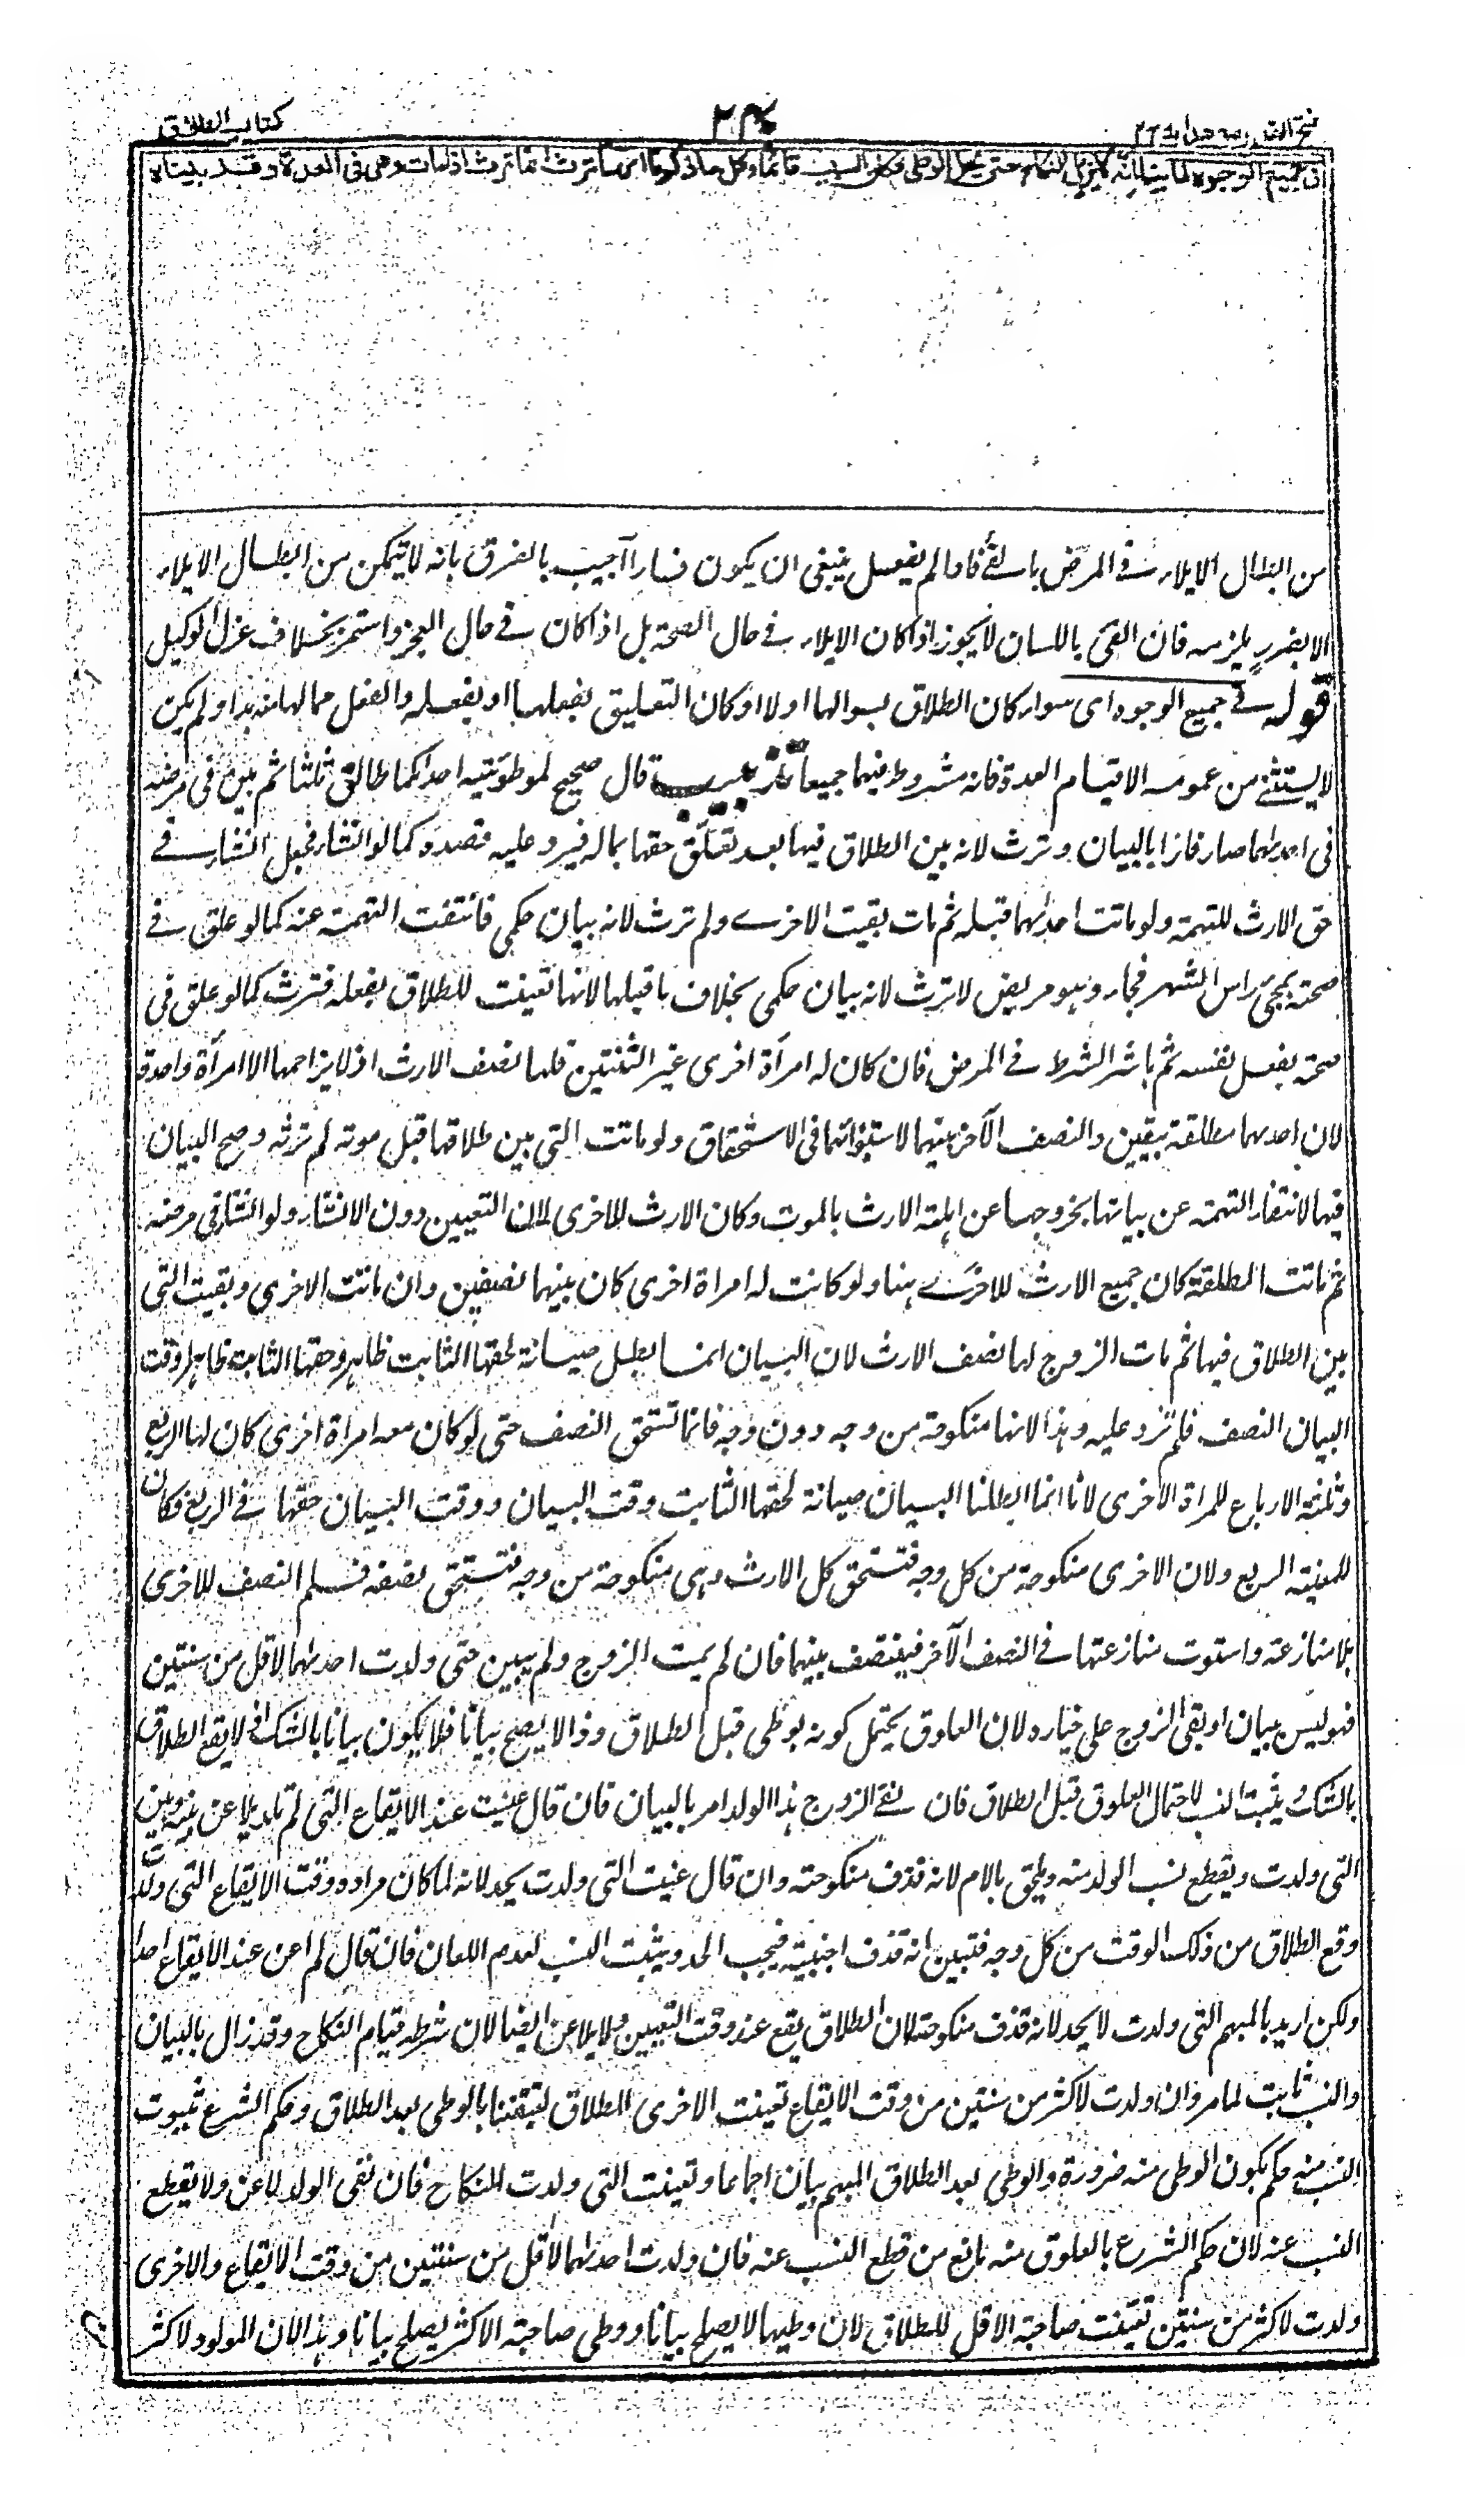 كتاب الطلاق
فى جميع الوجوه لما بينا انه لا يزيل النكاح حتى يحل الوطى فكان السبب قائما وكل ما ذكرنا انها ترث انما ترث اذا مات وهى فى العدة وقد بيناه
من ابطال الايلاء فى المرض بالفئ فاذا لم يفعل ينبغى ان يكون فارا اجيب بالفرق بانه لا يتمكن من ابطال الايلاء
الا بضرر يلزمه فان الفئ باللسان لا يجوز اذا كان الايلاء فى حال الصحة بل اذا كان فى حال العجز واستمر بخلاف عزل الوكيل
قوله فى جميع الوجوه اى سواء كان الطلاق بسوالها اولا او كان التعليق بفعلها او بفعله والفعل مما لها منه بد او لم يكن
لا يستثنى من عمومه الاقيام العدة فانه مشروط فيهما جميعا قال صحيح لموطوئتيه احداكما طالق ثلثا ثم بين فى مرضه
فى احدهما صار فارا بالبيان وترث لانه بين الطلاق فيها بعد تعلق حقها بماله فيرد عليه قصده كما لو انشاء فجعل انشاء فى
حق الارث للتهمة ولو ماتت احدهما قبله ثم مات بقيت الاخرى ولم ترث لانه بيان حكمى فانتفت التهمة عنه كما لو علق فى
صحته بمجئ راس الشهر فجاء وهو مريض لا ترث لانه بيان حكمى بخلاف ما قبلها لانها تعينت للطلاق بفعله فترث كما لو علق فى
صحته بفعل نفسه ثم باشر الشرط فى المرض فان كان له امرأة اخرى غير الثنتين فلها نصف الارث اذ لا يزاحمها الا امرأة واحدة
لان احدهما مطلقة بيقين والنصف الآخر بينهما لاستوائهما فى الاستحقاق ولو ماتت التى بين طلاقها قبل موته لم ترثه وصح البيان
فيها لانتفاء التهمة عن بيانها بخروجها عن اهلية الارث بالموت وكان الارث للاخرى لان التعيين دون الانشاء ولو انشاء فى مرضه
ثم ماتت المطلقة كان جميع الارث للاخرى هنا ولو كانت له امراة اخرى كان بينهما نصفين وان ماتت الاخرى وبقيت التى
بين الطلاق فيها ثم مات الزوج لها نصف الارث لان البيان انما ابطل صيانة لحقها الثابت ظاهرا وحقها الثابت ظاهرا وقت
البيان النصف فلم تزد عليه وهذا لانها منكوحة من وجه دون وجه فانما تستحق النصف حتى لو كان معه امراة اخرى كان لها الربع
وثلثة الارباع للمراة الاخرى لانا انما ابطلنا البيان صيانة لحقها الثابت وقت البيان ووقت البيان حقها فى الربع فكان
للمعينة الربع ولان الاخرى منكوحة من كل وجه فتستحق كل الارث وهى منكوحة من وجه فتستحق نصفه فسلم النصف للاخرى
بلا منازعة واستوت منازعتها فى النصف الآخر فينتصف بينهما فان لم يمت الزوج ولم يبين حتى ولدت احدهما لاقل من سنتين
فهو ليس ببيان وبقى الزوج على خياره لان العلوق يحتمل كونه بوطى قبل الطلاق وذا لا يصلح بيانا فلا يكون بيانا بالشك اذ لا يقع الطلاق
بالشك ويثبت النسب لاحتمال العلوق قبل الطلاق فان نفى الزوج هذا الولد امر بالبيان فان قال عنيت عند الايقاع التى لم تلد يلاعن بينه وبين
التى ولدت ويقطع نسب الولد منه ويلحق بالام لانه قذف منكوحته وان قال عنيت التى ولدت يحد لانه لما كان مراده وقت الايقاع التى ولدت
وقع الطلاق من ذلك الوقت من كل وجه فتبين انه قذف اجنبية فيجب الحد ويثبت النسب لعدم اللعان فان قال لم اعن عند الايقاع احدا
ولكن اريد بالمبهم التى ولدت لا يحد لانه قذف منكوحته لان الطلاق يقع عند وقت التعيين ولا يلاعن ايضا لان شرطه قيام النكاح وقد زال بالبيان
والنسب ثابت لما مر وان ولدت لاكثر من سنتين من وقت الايقاع تعينت الاخرى للطلاق لتيقننا بالوطى بعد الطلاق وحكم الشرع بثبوت
النسب منه حكم بكون الوطى منه ضرورة والوطى بعد الطلاق المبهم بيان اجماعا وتعينت التى ولدت للنكاح فان نفى الولد لاعن ولا يقطع
النسب عنه لان حكم الشرع بالعلوق منه مانع من قطع النسب عنه فان ولدت احدهما لاقل من سنتين من وقت الايقاع والاخرى
ولدت لاكثر من سنتين تعينت صاحبة الاقل للطلاق لان وطيها لا يصلح بيانا ووطى صاحبة الاكثر يصلح بيانا وهذا لان المولود لاكثر